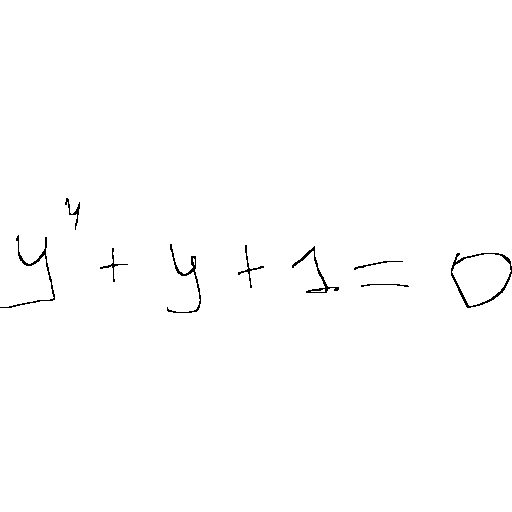 y⁴ + y + 1 = 0